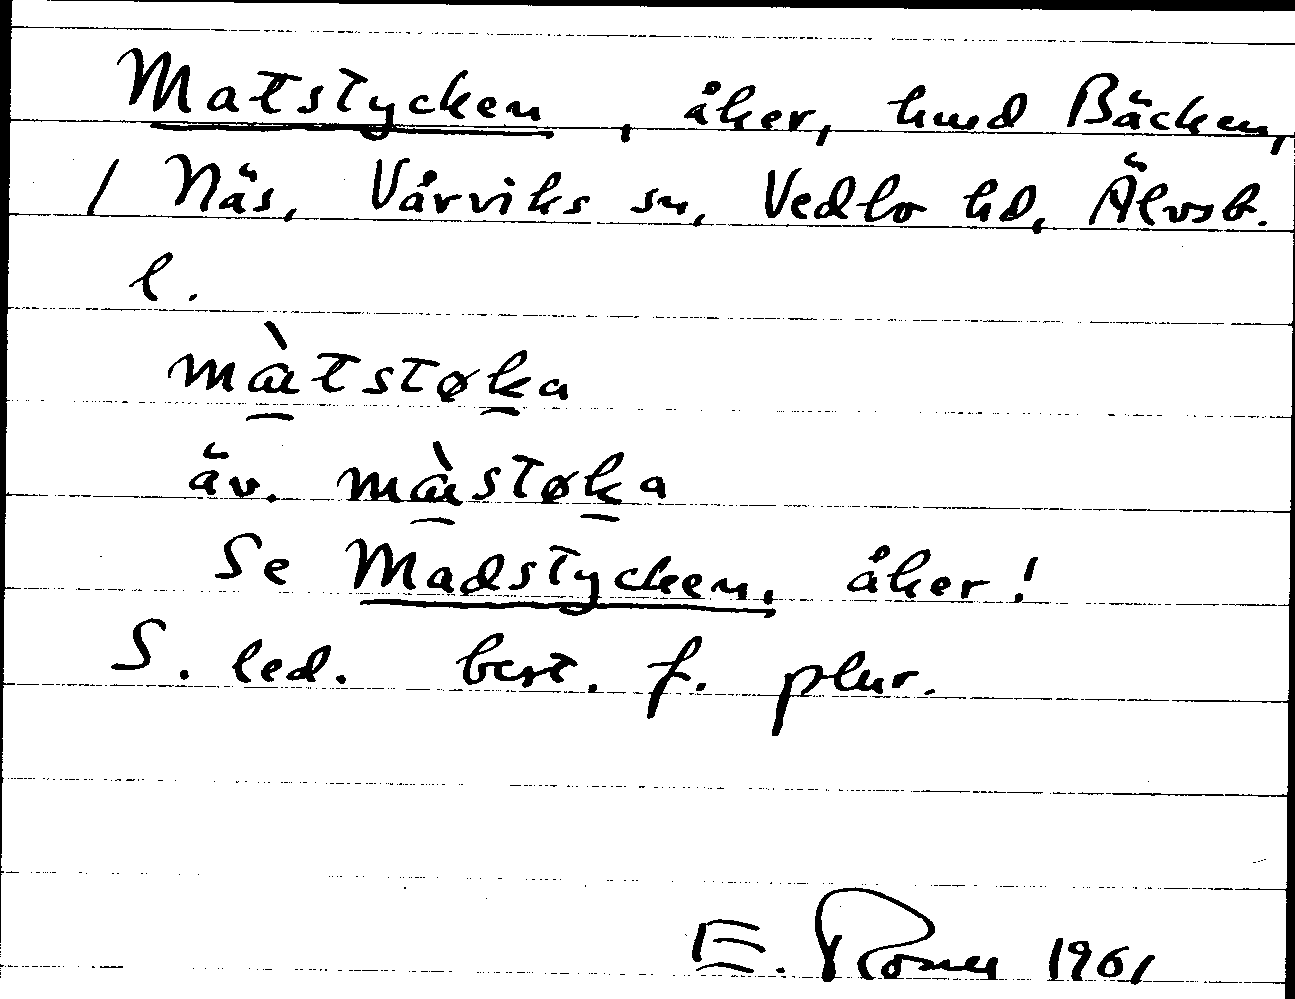 Matstycken, åker, hmd Bäcken,
1 Näs, Vårviks sn, Vedbo hd, Älvsb.
l.
màtstøka
äv. màstøka
Se Madstycken, åker!
S. led. best. f. plur.
E. 1961